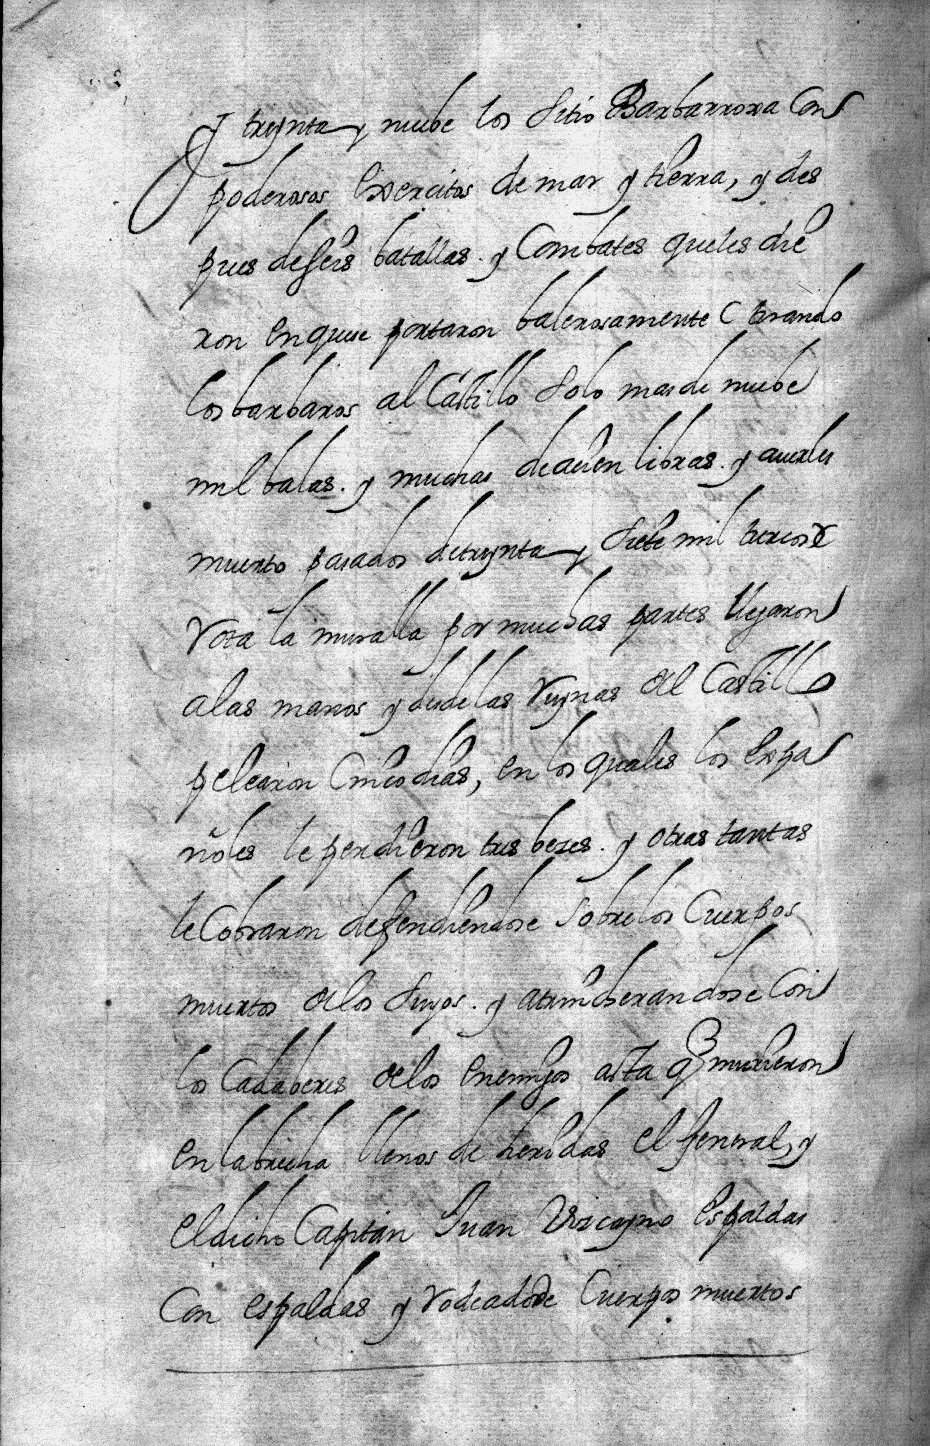 y treynta y nuebe los sitio Barbarroxa Con
poderosos Exercitos de mar y tierra, y des
pues de seis batallas. y Combates queles die
ron en quese portaron balerosamente tirando
los barbaros al Castillo solo mas de nuebe
mil balas. y muchas de a cien libras. y auerles
muerto pasados de treynta y siete mil turcos
Rota la muralla por muchas partes llegaron
alas manos y desde las Ruynas del Castillo
pelearon Cinco dias, en los quales los Espa
ñoles le perdieron tres bezes. y otras tantas
le Cobraron defendiendose sobre los Cuerpos
muertos de los suyos. y atrincherandose Con
los Cadaberes de los Enemigos asta q murieron
en la brecha llenos de heridas el General, y
el dicho Capitan Juan Vizcayno Espaldas
Con espaldas y Rodeado de Cuerpos muertos